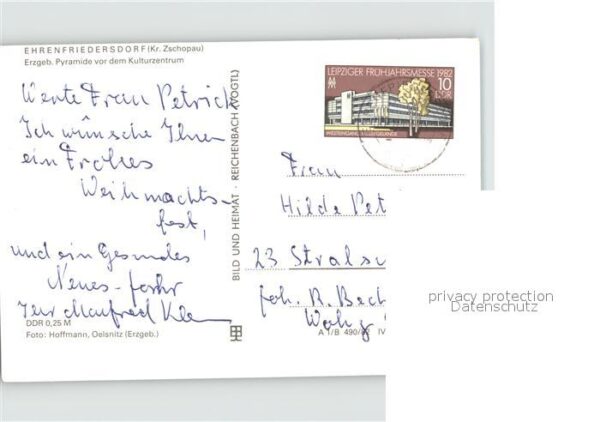 EHRENFRIEDERSDORF (Kr. Zschopau)
Erzgeb. Pyramide vor dem Kulturzentrum
Werte Frau Petrich
Ich wünsche Ihnen
ein Frohes
Weihnachts-
fest,
und ein Gesundes
Neues-Jahr
Manfred
DDR 0,25 M
Foto: Hoffmann, Oelsnitz (Erzgeb.)
BILD UND HEIMAT · REICHENBACH (VOGTL)
LEIPZIGER FRÜHJAHRSMESSE 1982
10
DDR
Frau
Hilde Pet
23 Strals
Joh. R. Bech
A 1/B 490/82 IV
privacy protection
Datenschutz